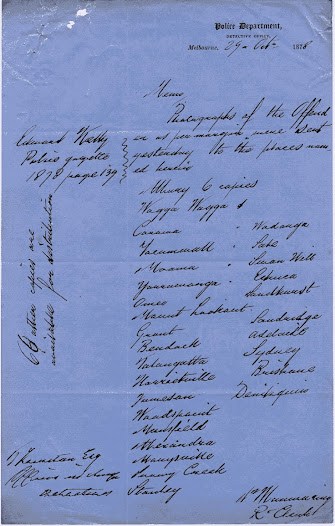 Police Department,
DETECTIVE OFFICE,
Melbourne, 29 Oct 1878
Memo
Photographs of the Offend
er as per margin were sent
yesterday to the places nam
ed herein
Edward Kelly
Police gazette
1878 page 139
Albury 6 copies
Wagga Wagga
Corowa
Tocumwall
Moama
Yarrawonga
Omeo
Mount Lookout
Grant
Bendock
Talangatta
Harrietville
Jamieson
Woodspoint
Mansfield
Alexandra
Marysville
Snowy Creek
Stanley
Wodonga
Sale
Swan Hill
Echuca
Sandhurst
Sandridge
Adelaide
Sydney
Brisbane
Deniliquin
copies are
available for distribution
Esq
Officer in charge
Detectives